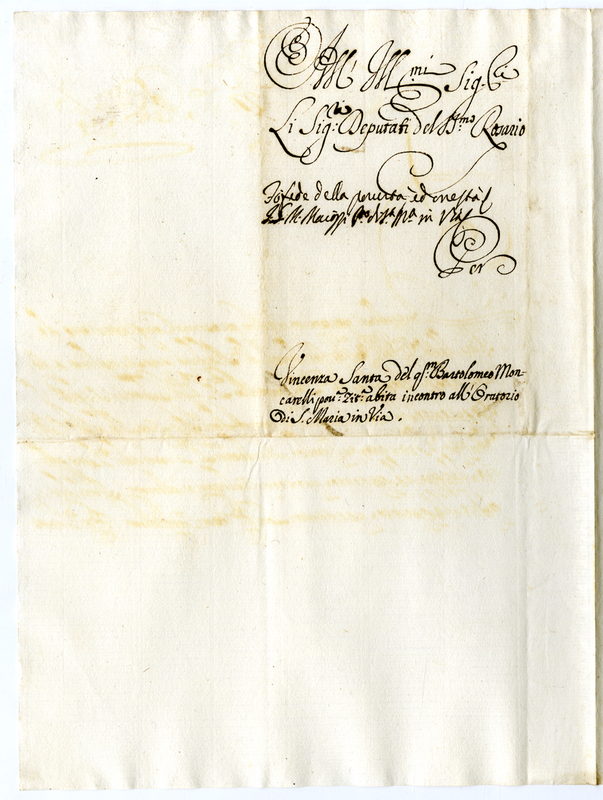 All' Ill.mi Sig.ri
Li Sig.ri Deputati del SS.mo Rosario
Io fede della povertà ed onestà
in Via
Per
Vincenza Santa del q.m Bartolomeo Mon-
carelli pov.a Zit.a abita incontro all' Oratorio
Di S. Maria in Via.